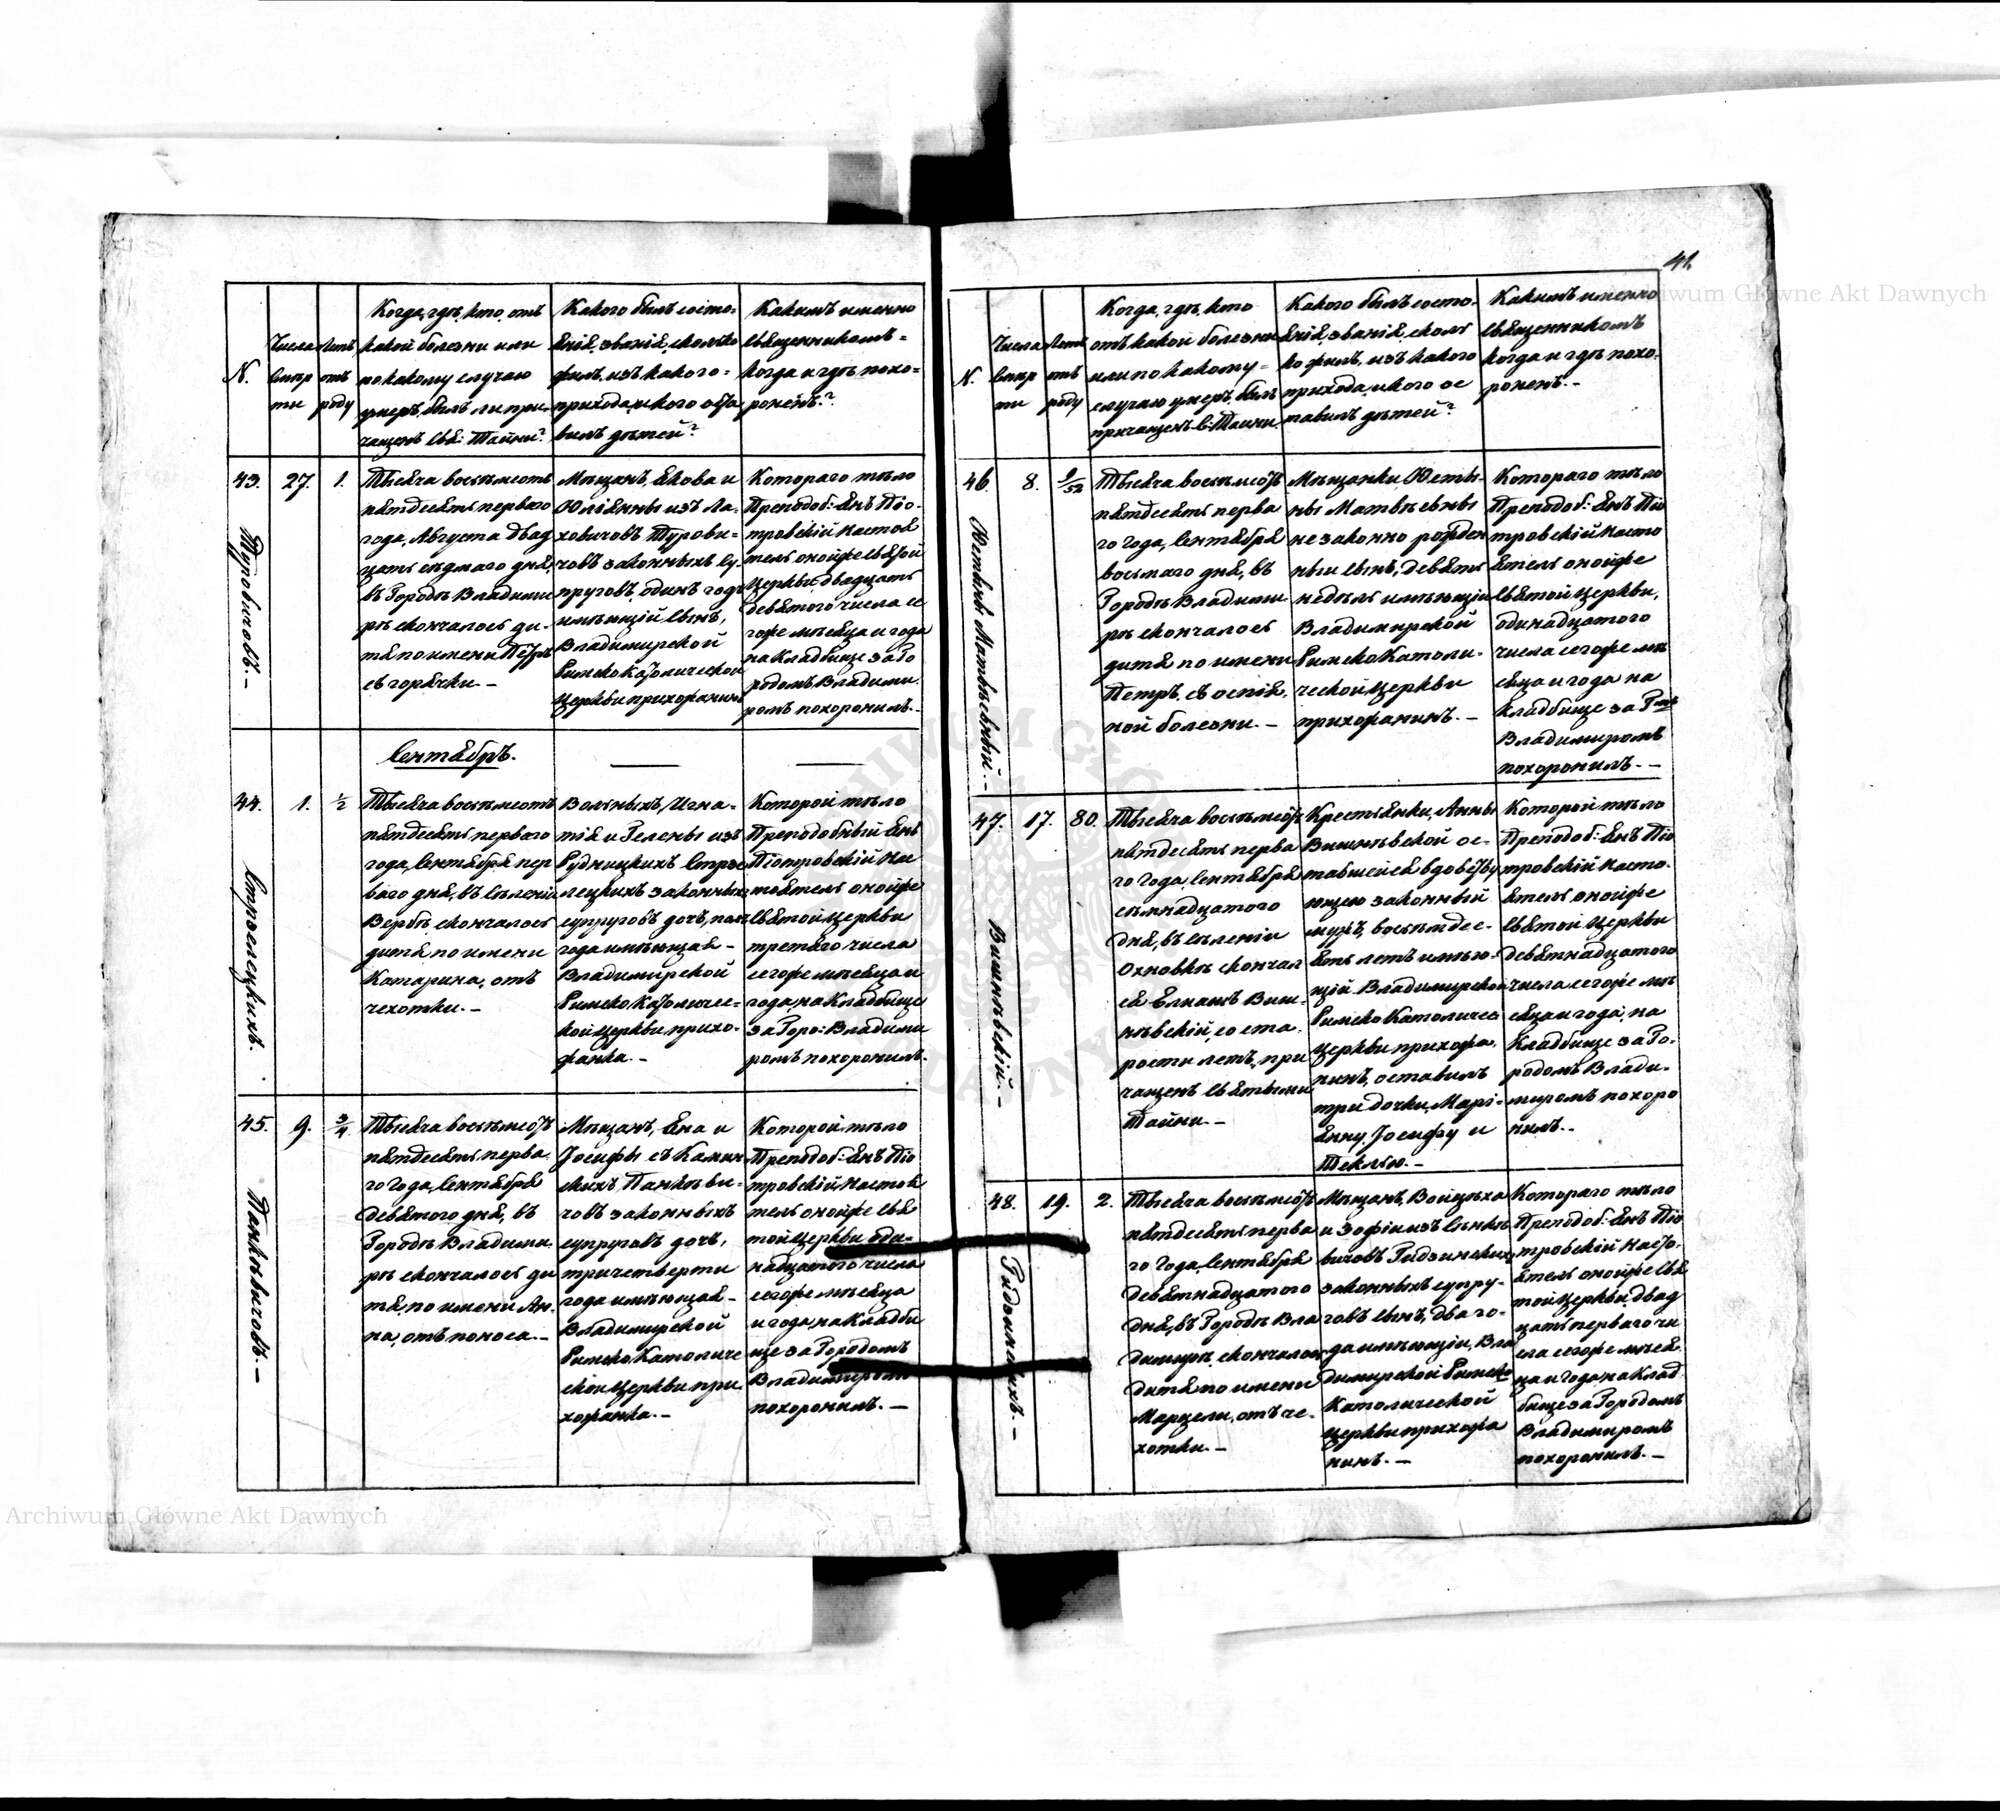 41.
N.
Числа смер ти
Летъ отъ роду
Когда, гдѣ, кто, отъ
какой болезни или
по какому случаю
умеръ, былъ ли при-
чащенъ Свя: Тайни?
Какого былъ состо-
янія, званія, сколько
филъ, изъ какого
прихода, и кого оста
вилъ дѣтей?
Какимъ именно
священникомъ
когда и гдѣ похо-
роненъ.?
43.
27.
1.
Туровичовъ.-
Тысяча восемьсотъ
пятдесятъ перваго
года, Августа двад
цать седмаго дня,
въ Городѣ Владими
рѣ скончалось ди-
тя по имени Пётръ
съ горячки.-
Мѣщанъ, Якова и
Юліянны изъ Ла-
ховичовъ Турови-
човъ законныхъ су-
пруговъ одинъ годъ
имѣющій сынъ,
Владимирской
Римско Католической
Церкви прихожанинъ
Котораго тѣло
Преподоб: Янъ Піо-
тровскій Настоя
тель онойже святой
Церкви, двадцать
девятого числа се
гоже мѣсяца и года
на Кладбище за Го
родомъ Владими
ромъ похоронилъ.-
Сентябръ.
44.
1.
1/2
Стрselецкихъ.
Тысяча восемьсотъ
пятдесятъ перваго
года, Сентября пер
ваго дня, въ Сѣленіи
Вербѣ скончалось
дитя по имени
Катарина, отъ
чехотки.-
Вольныхъ, Игна-
тія и Гелены изъ
Рудницкихъ Стрse
лецкихъ законныхъ
супруговъ дочъ, пол
года имѣющая-
Владимирской
Римско Католичес-
кой Церкви прихо-
жанка.-
Которой тѣло
Преподобный Янъ
Піотровскій Нас
тоятель онойже
святой Церкви
третяго числа
сегоже мѣсяца и
года, на Кладбище
за Горо: Владими
ромъ похоронилъ.
45.
9.
3/4
Панкѣвичовъ.-
Тысяча восемьсотъ
пятдесятъ перва
го года, Сентября
девятого дня, въ
Городѣ Владими
рѣ скончалось ди
тя, по имени Ан-
на, отъ поноса.-
Мѣщанъ, Яна и
Іосифы съ Камин
скихъ Панкѣви-
човъ законныхъ
супруговъ дочъ,
три четверти
года имѣющая-
Владимирской
Римско Католиче
ской Церкви при
хожанка.-
Которой тѣло
Преподоб: Янъ Піо
тровскій Настоя
тель онойже свя
той Церкви оди-
надцатого числа
сегоже мѣсяца
и года, на Кладби
ще за Городомъ
Владимиромъ
похоронилъ.-
N.
Числа смер ти
Летъ отъ роду
Когда, гдѣ, кто
отъ какой болезни
или по какому
случаю умеръ, былъ
причащенъ С: Таини.
Какого былъ состо-
янія, званія, сколь
ко филъ, изъ какого
прихода, и кого ос
тавилъ дѣтей?
Какимъ именно
Священникомъ
когда и гдѣ похо-
роненъ.-
46.
8.
9/52
Юстыны Матвѣевный.-
Тысяча восемьсотъ
пятдесятъ перва
го года, Сентября
восьмаго дня, въ
Городѣ Владими
рѣ скончалось
дитя по имени
Петръ, съ оспія
ной болезни.-
Мѣщанки, Юсты-
ны Матвѣевны
незаконно рожден
ный сынъ, девять
недѣль имѣющій
Владимирской
Римско Католи-
ческой Церкви
прихожанинъ.-
Котораго тѣло
Преподоб: Янъ Піо
тровскій Насто
ятель онойже
святой Церкви,
одинадцатого
числа сегоже мѣ
сяца и года на
Кладбище за Г-мъ
Владимиромъ
похоронилъ.-
47.
17.
80.
Вишнѣвскій.-
Тысяча восемьсотъ
пятдесятъ перва
го года, Сентября
семнадцатого
дня, въ сѣленіи
Охновкѣ скончал
ся Елиашъ Виш-
нѣвскій, со ста
рости летъ, при
чащенъ святыми
Тайни.-
Крестьянки, Анны
Вишнѣвской ос-
тавшейся вдовству
ющею законный
мужъ, восемдес-
ять летъ имѣю-
щій Владимирской
Римско Католичес
Церкви прихожа
нинъ, оставилъ
три дочки, Марі-
янну, Іосифу и
Теклю.-
Которой тѣло
Преподоб: Янъ Піо
тровскій Насто-
ятель онойже
святой Церкви
девятнадцатого
числа сегоже мѣ
сяца и года, на
Кладбище за Го-
родомъ Влади-
миромъ похоро
нилъ.-
48.
19.
2.
Гидзинскихъ.-
Тысяча восемьсотъ
пятдесятъ перва
го года, Сентября
девятнадцатого
дня, въ Городѣ Вла
димирѣ, скончалось
дитя по имени
Марцели, отъ че-
хотки.-
Мѣщанъ, Войцѣха
и Зофіи изъ Сѣнкѣ
вичовъ Гидзинскихъ
законныхъ супру-
говъ сынъ, два го-
да имѣющій, Вла
димирской Римско
Католической
Церкви прихожа
нинъ.-
Котораго тѣло
Преподоб: Янъ Піо
тровскій Насто-
ятель онойже свя
той Церкви, двад
цать перваго чи
сла сегоже мѣся
ца и года, на Клад
бище за Городомъ
Владимиромъ
похоронилъ.-
Archiwum Główne Akt Dawnych
Archiwum Główne Akt Dawnych